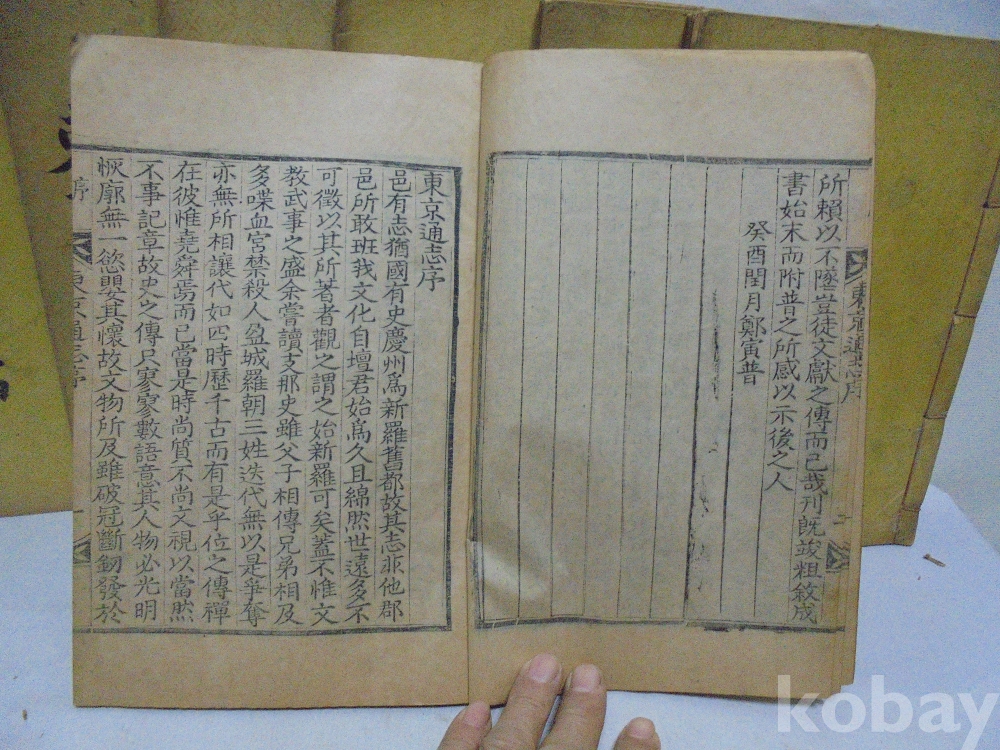 所賴以不墜豈徒文獻之傳而已哉刊旣竣粗敘成
書始末而附普之所感以示後之人
癸酉閏月鄭寅普
東京通志序
東京通志序
邑有志猶國有史慶州爲新羅舊都故其志非他郡
邑所敢班我文化自壇君始爲久且綿然世遠多不
可徵以其所著者觀之謂之始新羅可矣蓋不惟文
教武事之盛余嘗讀支那史雖父子相傳兄弟相及
多喋血宮禁殺人盈城羅朝三姓迭代無以是爭奪
亦無所相讓代如四時歷千古而有是乎位之傳禪
在彼惟堯舜焉而已當是時尚質不尚文視以當然
不事記章故史之傳只寥寥數語意其人物必光明
恢廓無一慾嬰其懷故文物所及雖破冠斷釰發於
序
東京通志序
一
kobay